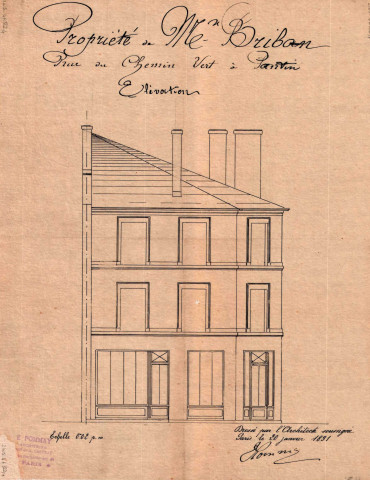 Propriété de Mr Briban
Rue du Chemin Vert à Pantin
Elévation
Echelle 0.02 p. m
Dressé par l'Architecte soussigné
Paris le 20 janvier 1891
PARIS